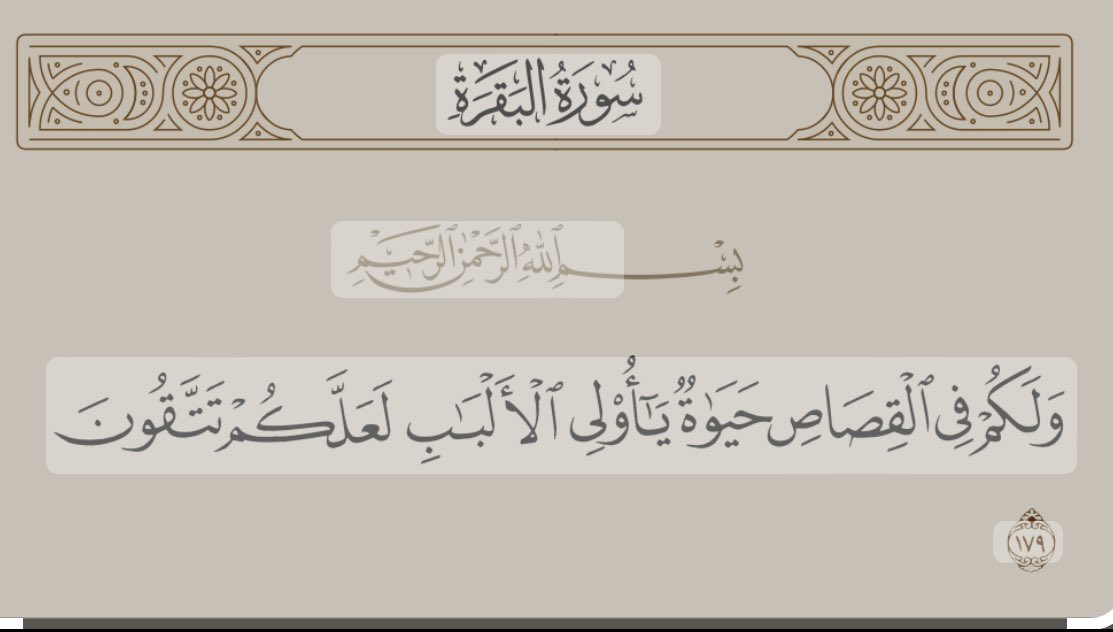 سُورَةُ البَقَرَةِ
بِسْمِ ٱللَّهِ ٱلرَّحْمَٰنِ ٱلرَّحِيمِ
وَلَكُمْ فِى ٱلْقِصَاصِ حَيَوٰةٌ يَـٰٓأُو۟لِى ٱلْأَلْبَـٰبِ لَعَلَّكُمْ تَتَّقُونَ
١٧٩